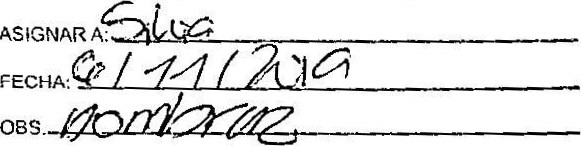 ASIGNAR A: Silva
FECHA: 6/11/2019
OBS. nombrar